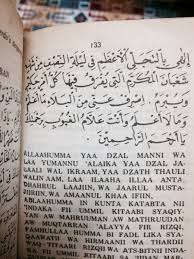 133
إِلٰهِي بِالتَّجَلِّي الْأَعْظَمِ فِي لَيْلَةِ النِّصْفِ مِنْ
شَعْبَانَ الْمُكَرَّمِ الَّتِي يُفْرَقُ فِيهَا كُلُّ أَمْرٍ حَكِيمٍ
اِصْرِفْ عَنِّي مِنَ الْبَلَاءِ
عَلَّامُ الْغُيُوبِ بِرَحْمَتِكَ
ALLAAHUMMA YAA DZAL MANNI WA
LAA YUMANNU 'ALAIKA YAA DZAL JA-
LAALI WAL IKRAAM, YAA DZATH THAULI
WAL IN'AAM, LAA ILAAHA ILLAA ANTA
DHAHRUL LAAJIIN, WA JAARUL MUSTA-
JIIRIIN, WA AMANUL KHAA IFIIN.
ALLAAHUMMA IN KUNTA KATABTA NII
'INDAKA FII UMMIL KITAABI SYAQIY-
YAN AW MAHRUUMAN AW MATHRUUDAN
AW MUQTARRAN 'ALAYYA FIR RIZQI,
FAMHU ALLAAHUMMA BI FADL LIKA SYA-
QAAWATII WA HIRMAANII WA THARDII
WAQ TITAARI RIZQII WA ATS-BITNII INDA-
FII UMMIL KITAABI